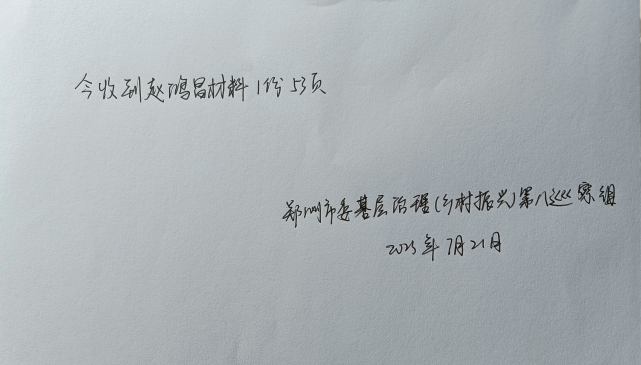 今收到赵鸿昌材料1份53页
郑州市委基层治理(乡村振兴)第八巡察组
2025年7月21日